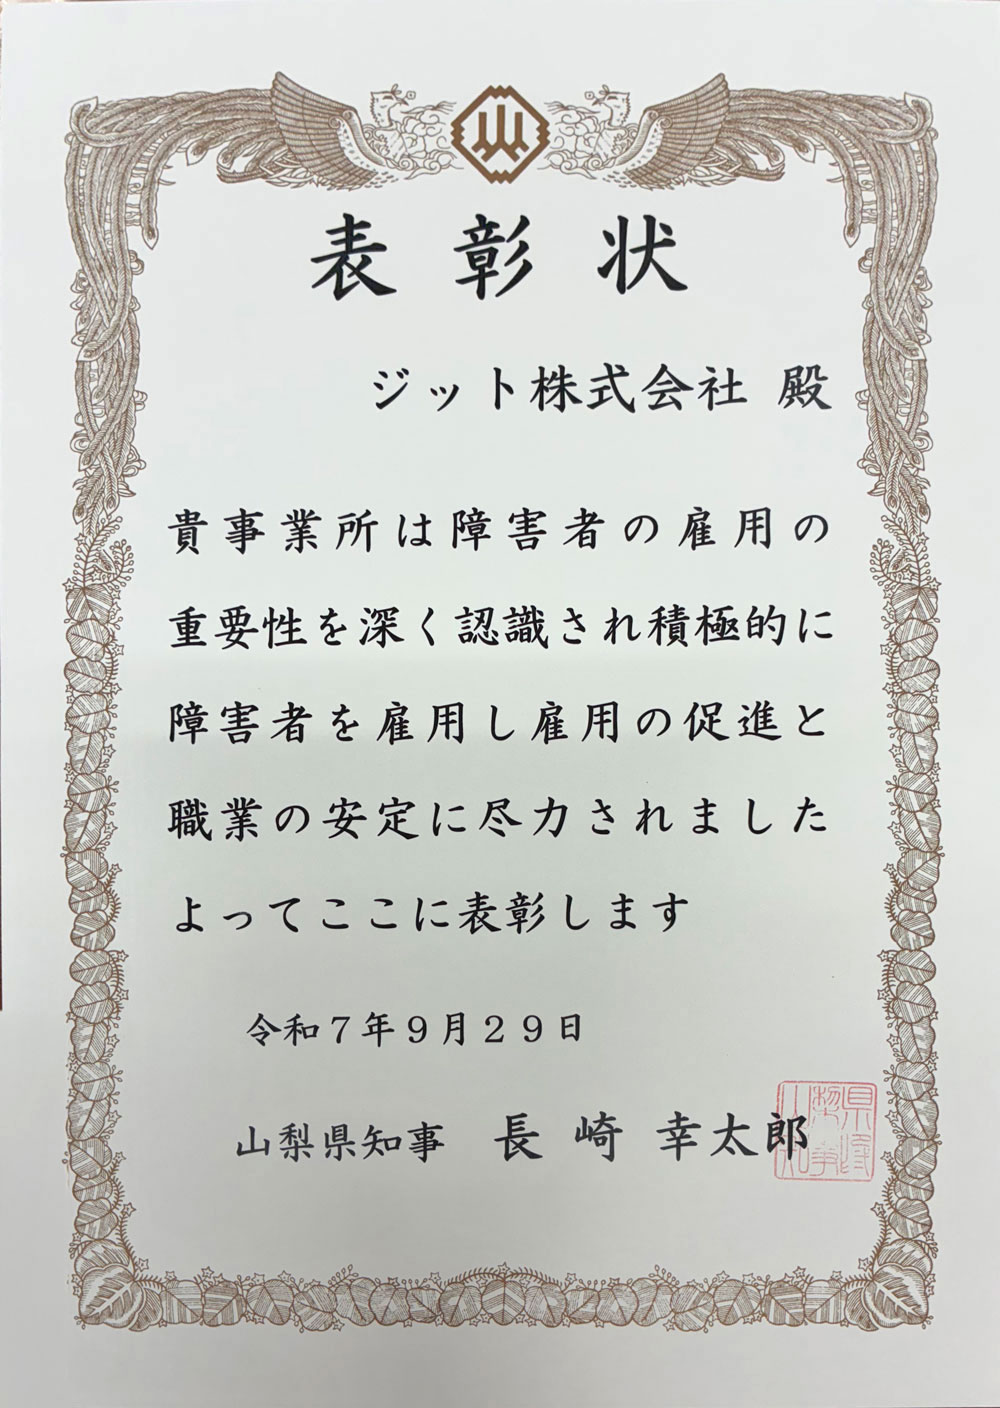 表彰状
ジット株式会社 殿
貴事業所は障害者の雇用の
重要性を深く認識され積極的に
障害者を雇用し雇用の促進と
職業の安定に尽力されました
よってここに表彰します
令和７年９月２９日
山梨県知事 長崎 幸太郎